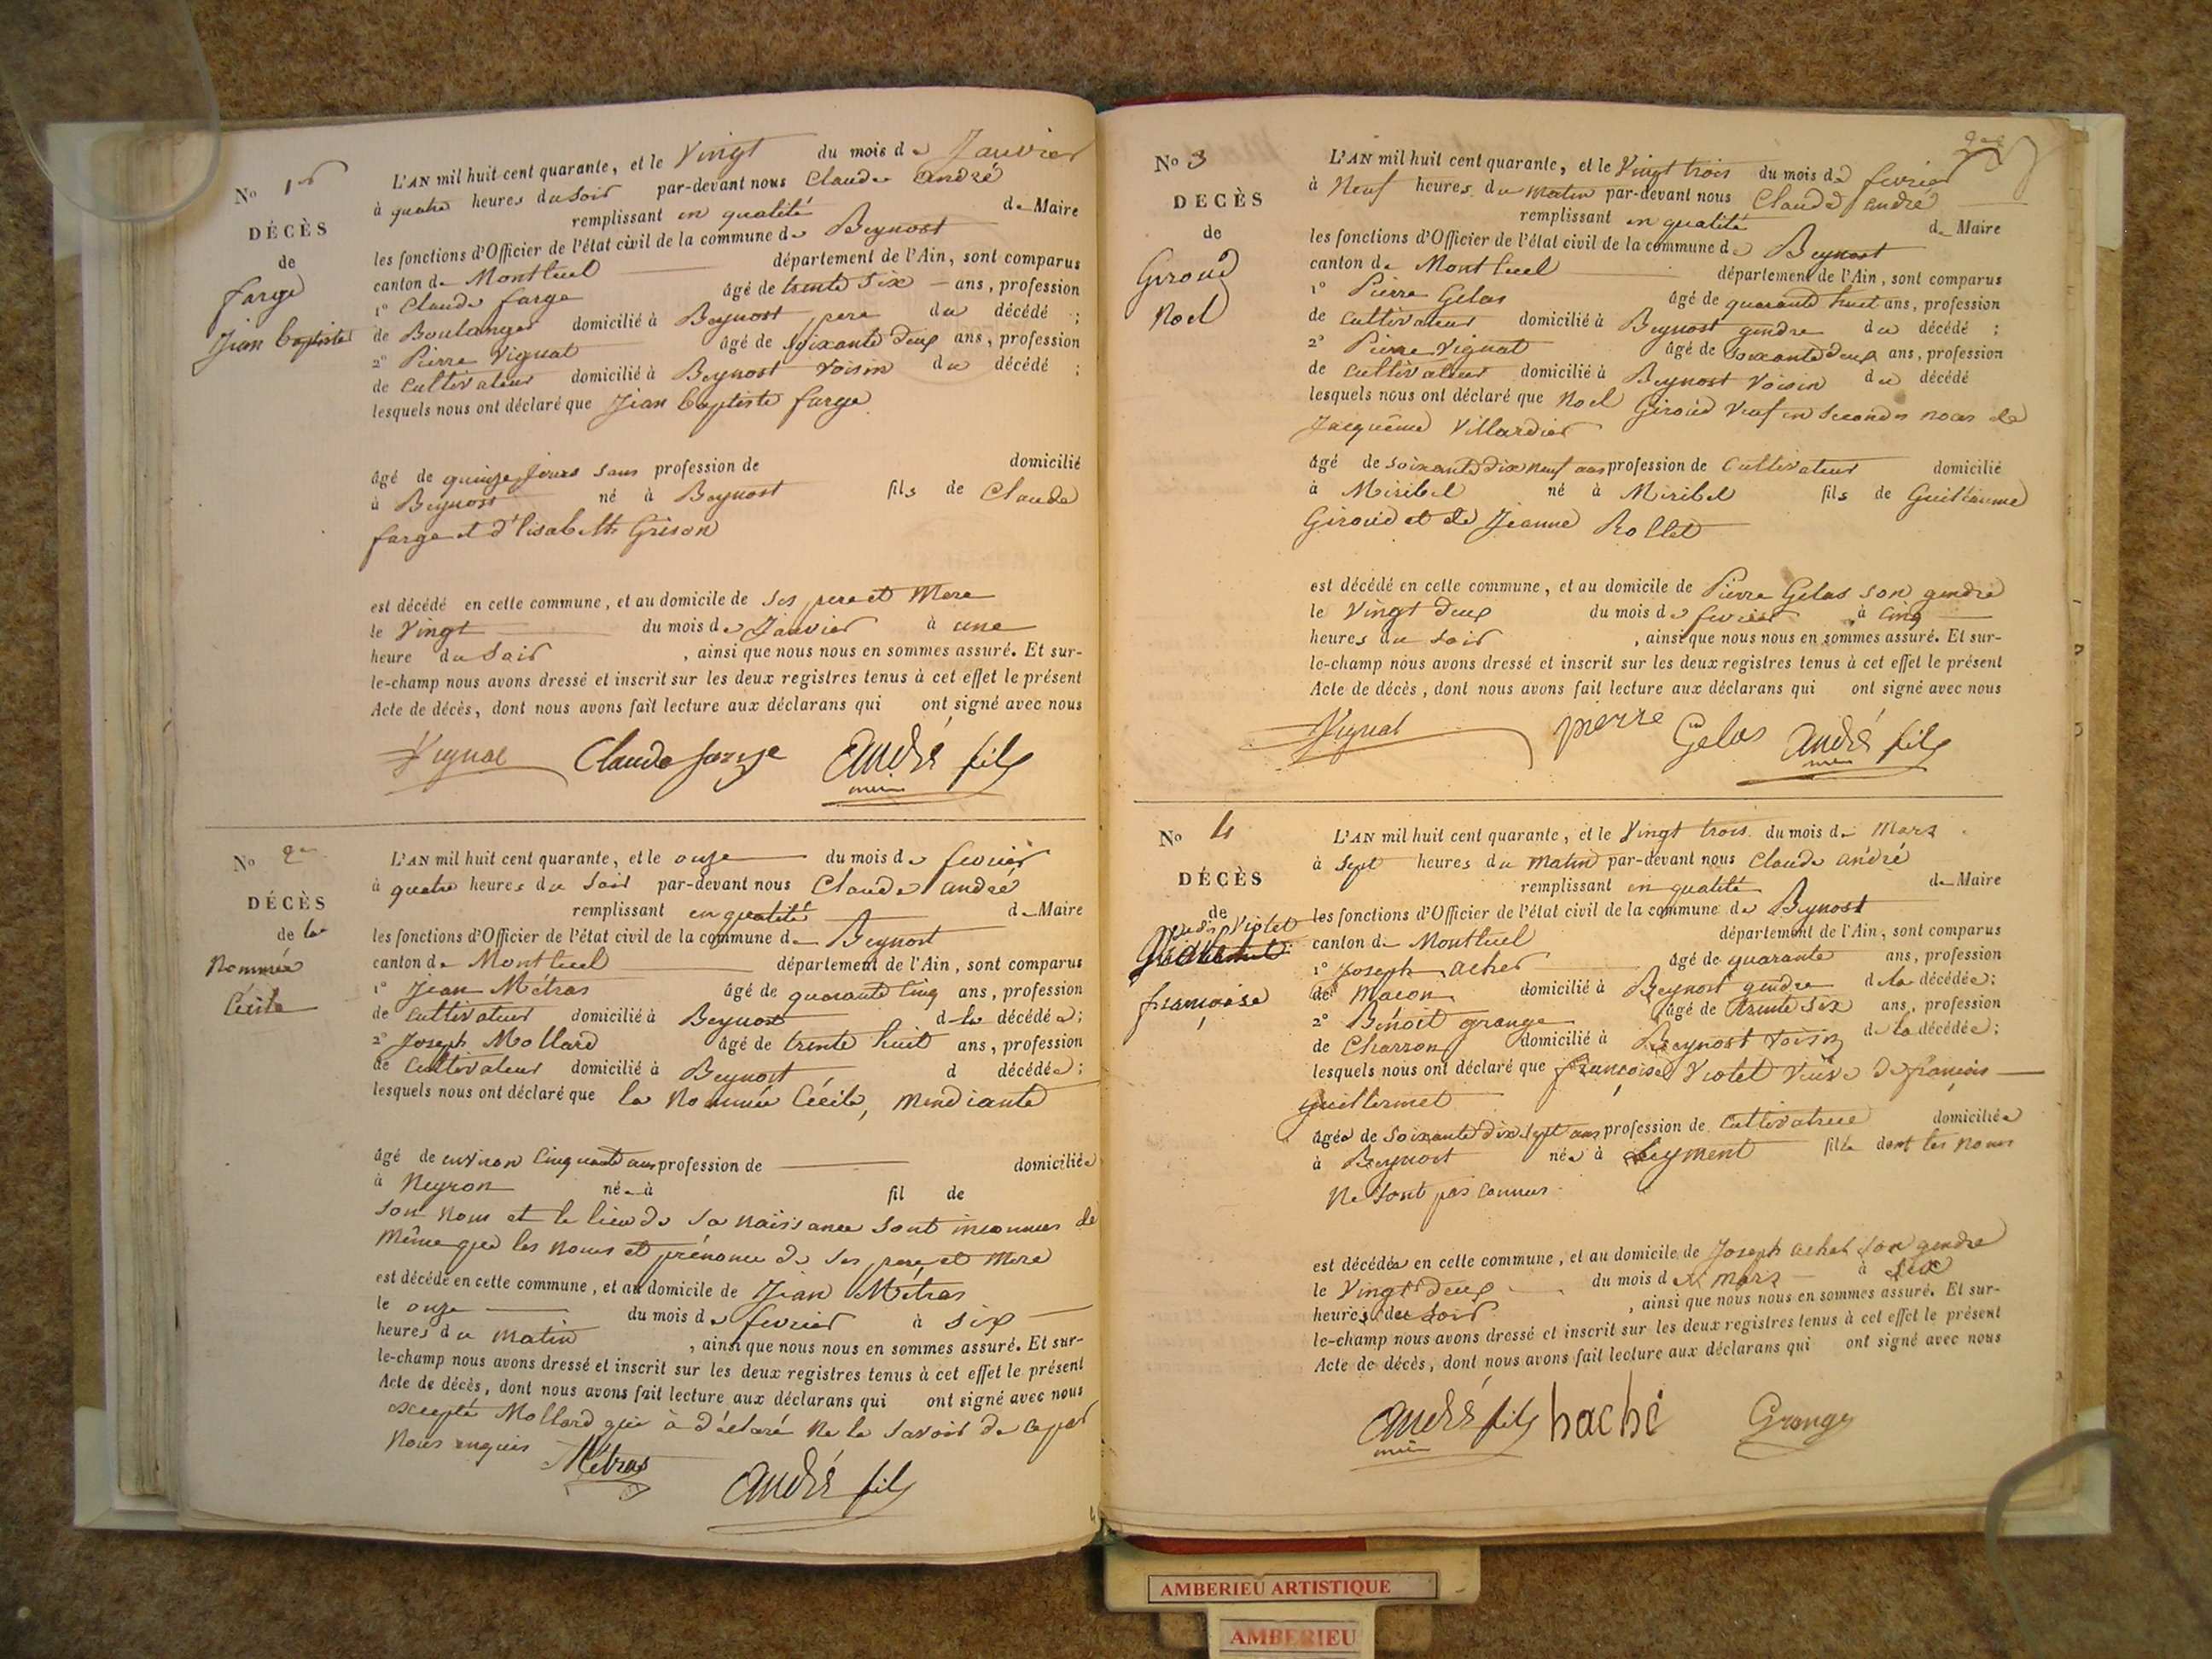 No 1er
DÉCÈS
de
farge
Jean baptiste
L'AN mil huit cent quarante, et le Vingt du mois de Janvier
à quatre heures du Soir par-devant nous Claude André
remplissant en qualité de Maire
les fonctions d'Officier de l'état civil de la commune de Beynost
canton de Montluel département de l'Ain, sont comparus
1° Claude farge âgé de trente Six ans, profession
de Boulanger domicilié à Beynost pere du décédé ;
2° Pierre Vignat âgé de Soixante deux ans, profession
de Cultivateur domicilié à Beynost Voisin du décédé ;
lesquels nous ont déclaré que Jean baptiste farge
âgé de quinze jours sans profession de domicilié
à Beynost né à Beynost fils de Claude
farge et d'lisabeth Grison
est décédé en cette commune, et au domicile de Ses pere et Mere
le Vingt du mois de Janvier à une
heure du Soir , ainsi que nous nous en sommes assuré. Et sur-
le-champ nous avons dressé et inscrit sur les deux registres tenus à cet effet le présent
Acte de décès, dont nous avons fait lecture aux déclarans qui ont signé avec nous
Vignat Claude farge André fils
No 2e
DÉCÈS
de la
Nommée
Cécile
L'AN mil huit cent quarante, et le onze du mois de fevrier
à quatre heures du Soir par-devant nous Claude André
remplissant en qualité de Maire
les fonctions d'Officier de l'état civil de la commune de Beynost
canton de Montluel département de l'Ain, sont comparus
1° Jean Métras âgé de quarante Cinq ans, profession
de Cultivateur domicilié à Beynost de la décédée;
2° Joseph Mollard âgé de trente huit ans, profession
de Cultivateur domicilié à Beynost d décédée;
lesquels nous ont déclaré que la Nommée Cécile, Mendiante
âgé de environ Cinquante ans profession de domiciliée
à Neyron née à fil de
Son Nom et le lieu de Sa Naissance Sont inconnus de
Même que les Noms et prénoms de Ses pere et Mere
est décédé en cette commune, et au domicile de Jean Métras
le onze du mois de fevrier à Six
heures du Matin , ainsi que nous nous en sommes assuré. Et sur-
le-champ nous avons dressé et inscrit sur les deux registres tenus à cet effet le présent
Acte de décès, dont nous avons fait lecture aux déclarans qui ont signé avec nous
excepté Mollard qui à déclaré Ne le Savoir de ce par
Nous enquis Métras
André fils
No 3
DECÈS
de
Giroud
Noel
L'AN mil huit cent quarante, et le Vingt trois du mois de fevrier
à Neuf heures du Matin par-devant nous Claude André
remplissant en qualité de Maire
les fonctions d'Officier de l'état civil de la commune de Beynost
canton de Montluel département de l'Ain, sont comparus
1° Pierre Gelas âgé de quarante huit ans, profession
de Cultivateur domicilié à Beynost gendre du décédé ;
2° Pierre Vignat âgé de Soixante deux ans, profession
de Cultivateur domicilié à Beynost Voisin du décédé
lesquels nous ont déclaré que Noel Giroud Veuf en Secondes noces de
Jacquême Villardier
âgé de Soixante dix neuf ans profession de Cultivateur domicilié
à Miribel né à Miribel fils de Guillaume
Giroud et de Jeanne Rollet
est décédé en cette commune, et au domicile de Pierre Gelas son gendre
le Vingt deux du mois de fevrier à Cinq
heures du Soir , ainsi que nous nous en sommes assuré. Et sur-
le-champ nous avons dressé et inscrit sur les deux registres tenus à cet effet le présent
Acte de décès, dont nous avons fait lecture aux déclarans qui ont signé avec nous
Vignat pierre Gelas André fils
No 4
DÉCÈS
de
Violet
françoise
L'AN mil huit cent quarante, et le Vingt trois du mois de Mars
à Sept heures du Matin par-devant nous Claude André
remplissant en qualité de Maire
les fonctions d'Officier de l'état civil de la commune de Beynost
canton de Montluel département de l'Ain, sont comparus
1° Joseph achet âgé de quarante ans, profession
de Macon domicilié à Beynost gendre de la décédée;
2° Bénoit grange âgé de trente Six ans, profession
de Charron domicilié à Beynost Voisin de la décédée;
lesquels nous ont déclaré que françoise Violet Veuve de françois
guillermet
âgée de Soixante dix Sept ans profession de Cultivatrice domiciliée
à Beynost née à Leyment fille dont les Noms
Ne Sont pas Connus
est décédée en cette commune, et au domicile de Joseph achet Son gendre
le Vingt deux du mois de mars à Six
heures du Soir , ainsi que nous nous en sommes assuré. Et sur-
le-champ nous avons dressé et inscrit sur les deux registres tenus à cet effet le présent
Acte de décès, dont nous avons fait lecture aux déclarans qui ont signé avec nous
André fils haché Grange
AMBERIEU ARTISTIQUE
AMBERIEU